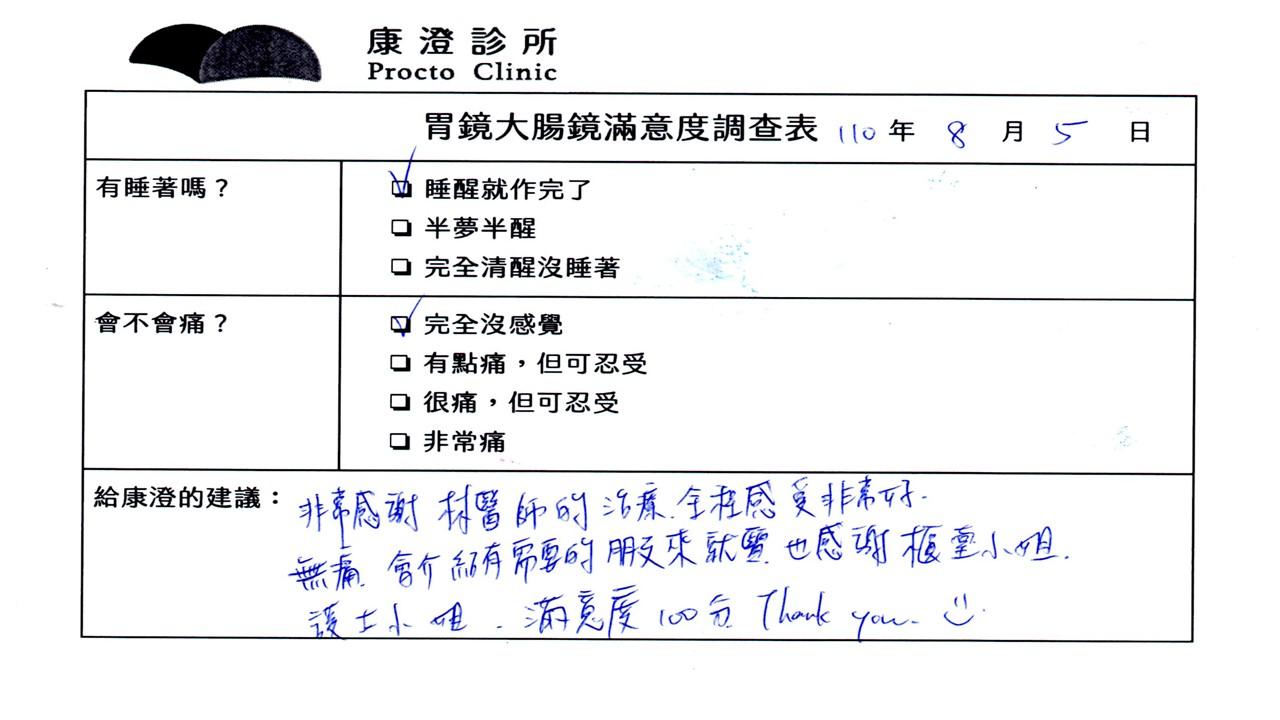 康澄診所
Procto Clinic
胃鏡大腸鏡滿意度調查表 110年 8 月 5 日
有睡著嗎？
睡醒就作完了
半夢半醒
完全清醒沒睡著
會不會痛？
完全沒感覺
有點痛，但可忍受
很痛，但可忍受
非常痛
給康澄的建議：非常感謝 林醫師的治療.全程感受非常好.
無痛. 會介紹有需要的朋友來就醫.也感謝櫃臺小姐.
護士小姐. 滿意度100分. Thank you.